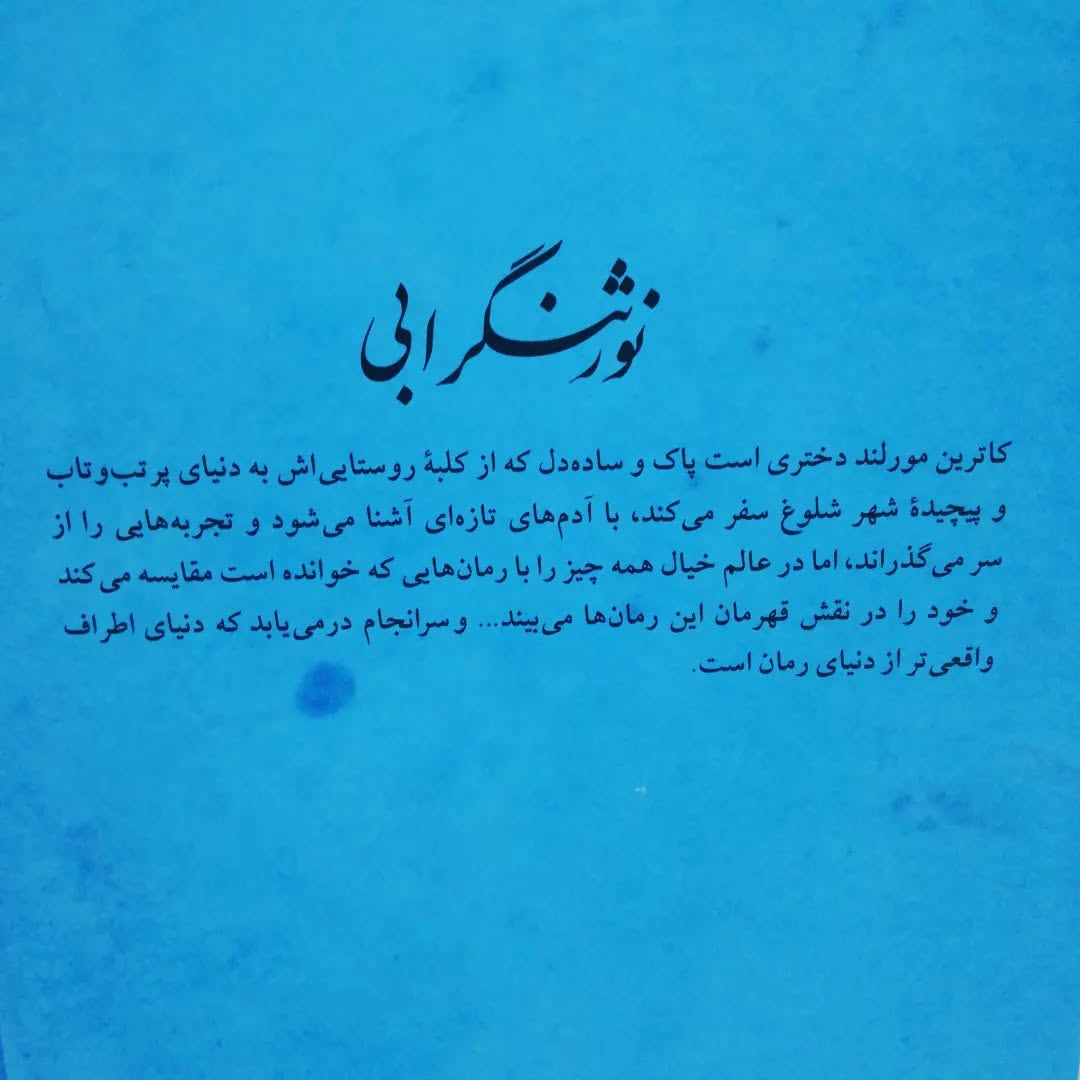 نورثنگر ابی
کاترین مورلند دختری است پاک و ساده‌دل که از کلبهٔ روستایی‌اش به دنیای پر تب‌و‌تاب
و پیچیدهٔ شهر شلوغ سفر می‌کند، با آدم‌های تازه‌ای آشنا می‌شود و تجربه‌هایی را از
سر می‌گذراند، اما در عالم خیال همه چیز را با رمان‌هایی که خوانده است مقایسه می‌کند
و خود را در نقش قهرمان این رمان‌ها می‌بیند... و سرانجام درمی‌یابد که دنیای اطراف
واقعی‌تر از دنیای رمان است.